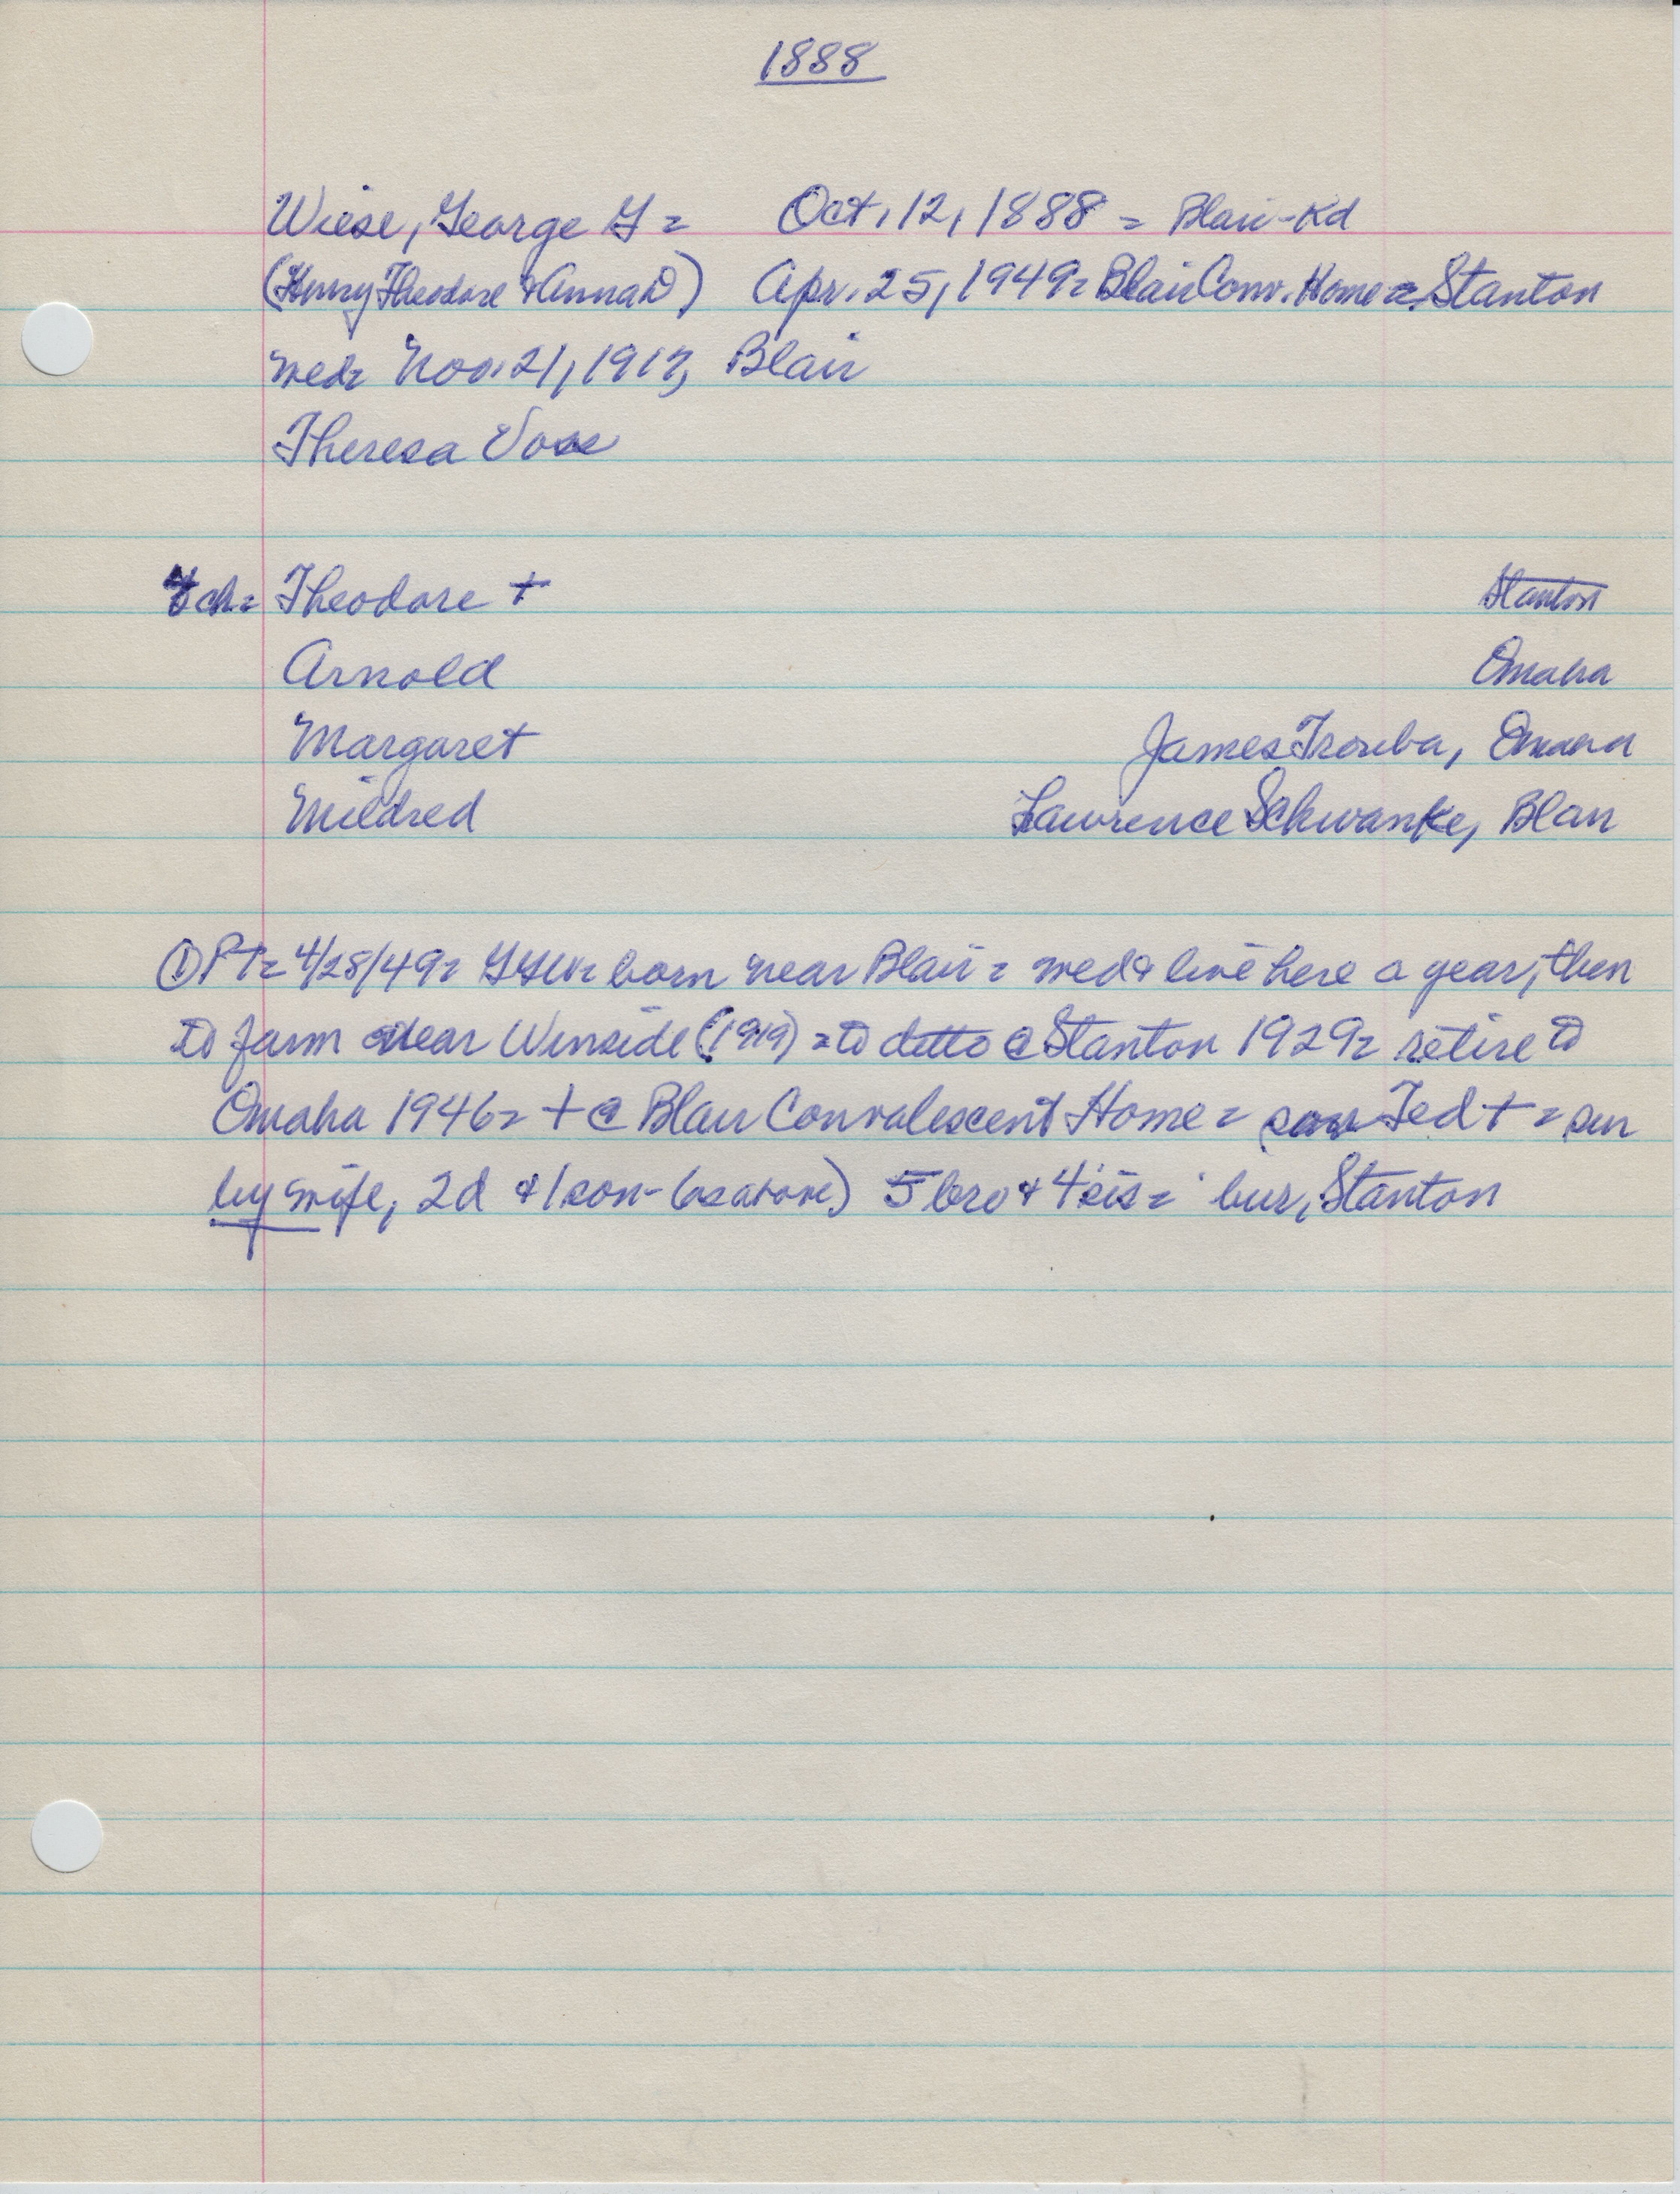 1888
Wiese, George G = Oct, 12, 1888 = Blair - Rd
(Henry Theodore & Anna D) Apr. 25, 1949 = Blair Conv. Home = Stanton
med = Nov. 21, 1917, Blair
Theresa Voss
4 ch = Theodore + Stanton
Arnold Omaha
Margaret James Trouba, Omaha
Mildred Lawrence Schwanke, Blair
① PT = 4/28/49 = GGW = born near Blair = med & live here a year, then
to farm near Winside (1919) = to ditto @ Stanton 1929 = retire to
Omaha 1946 = + @ Blair Convalescent Home = son Ted + = sur
by wife, 2d & 1 son - (as above) 5 bro & 4 sis = bur, Stanton